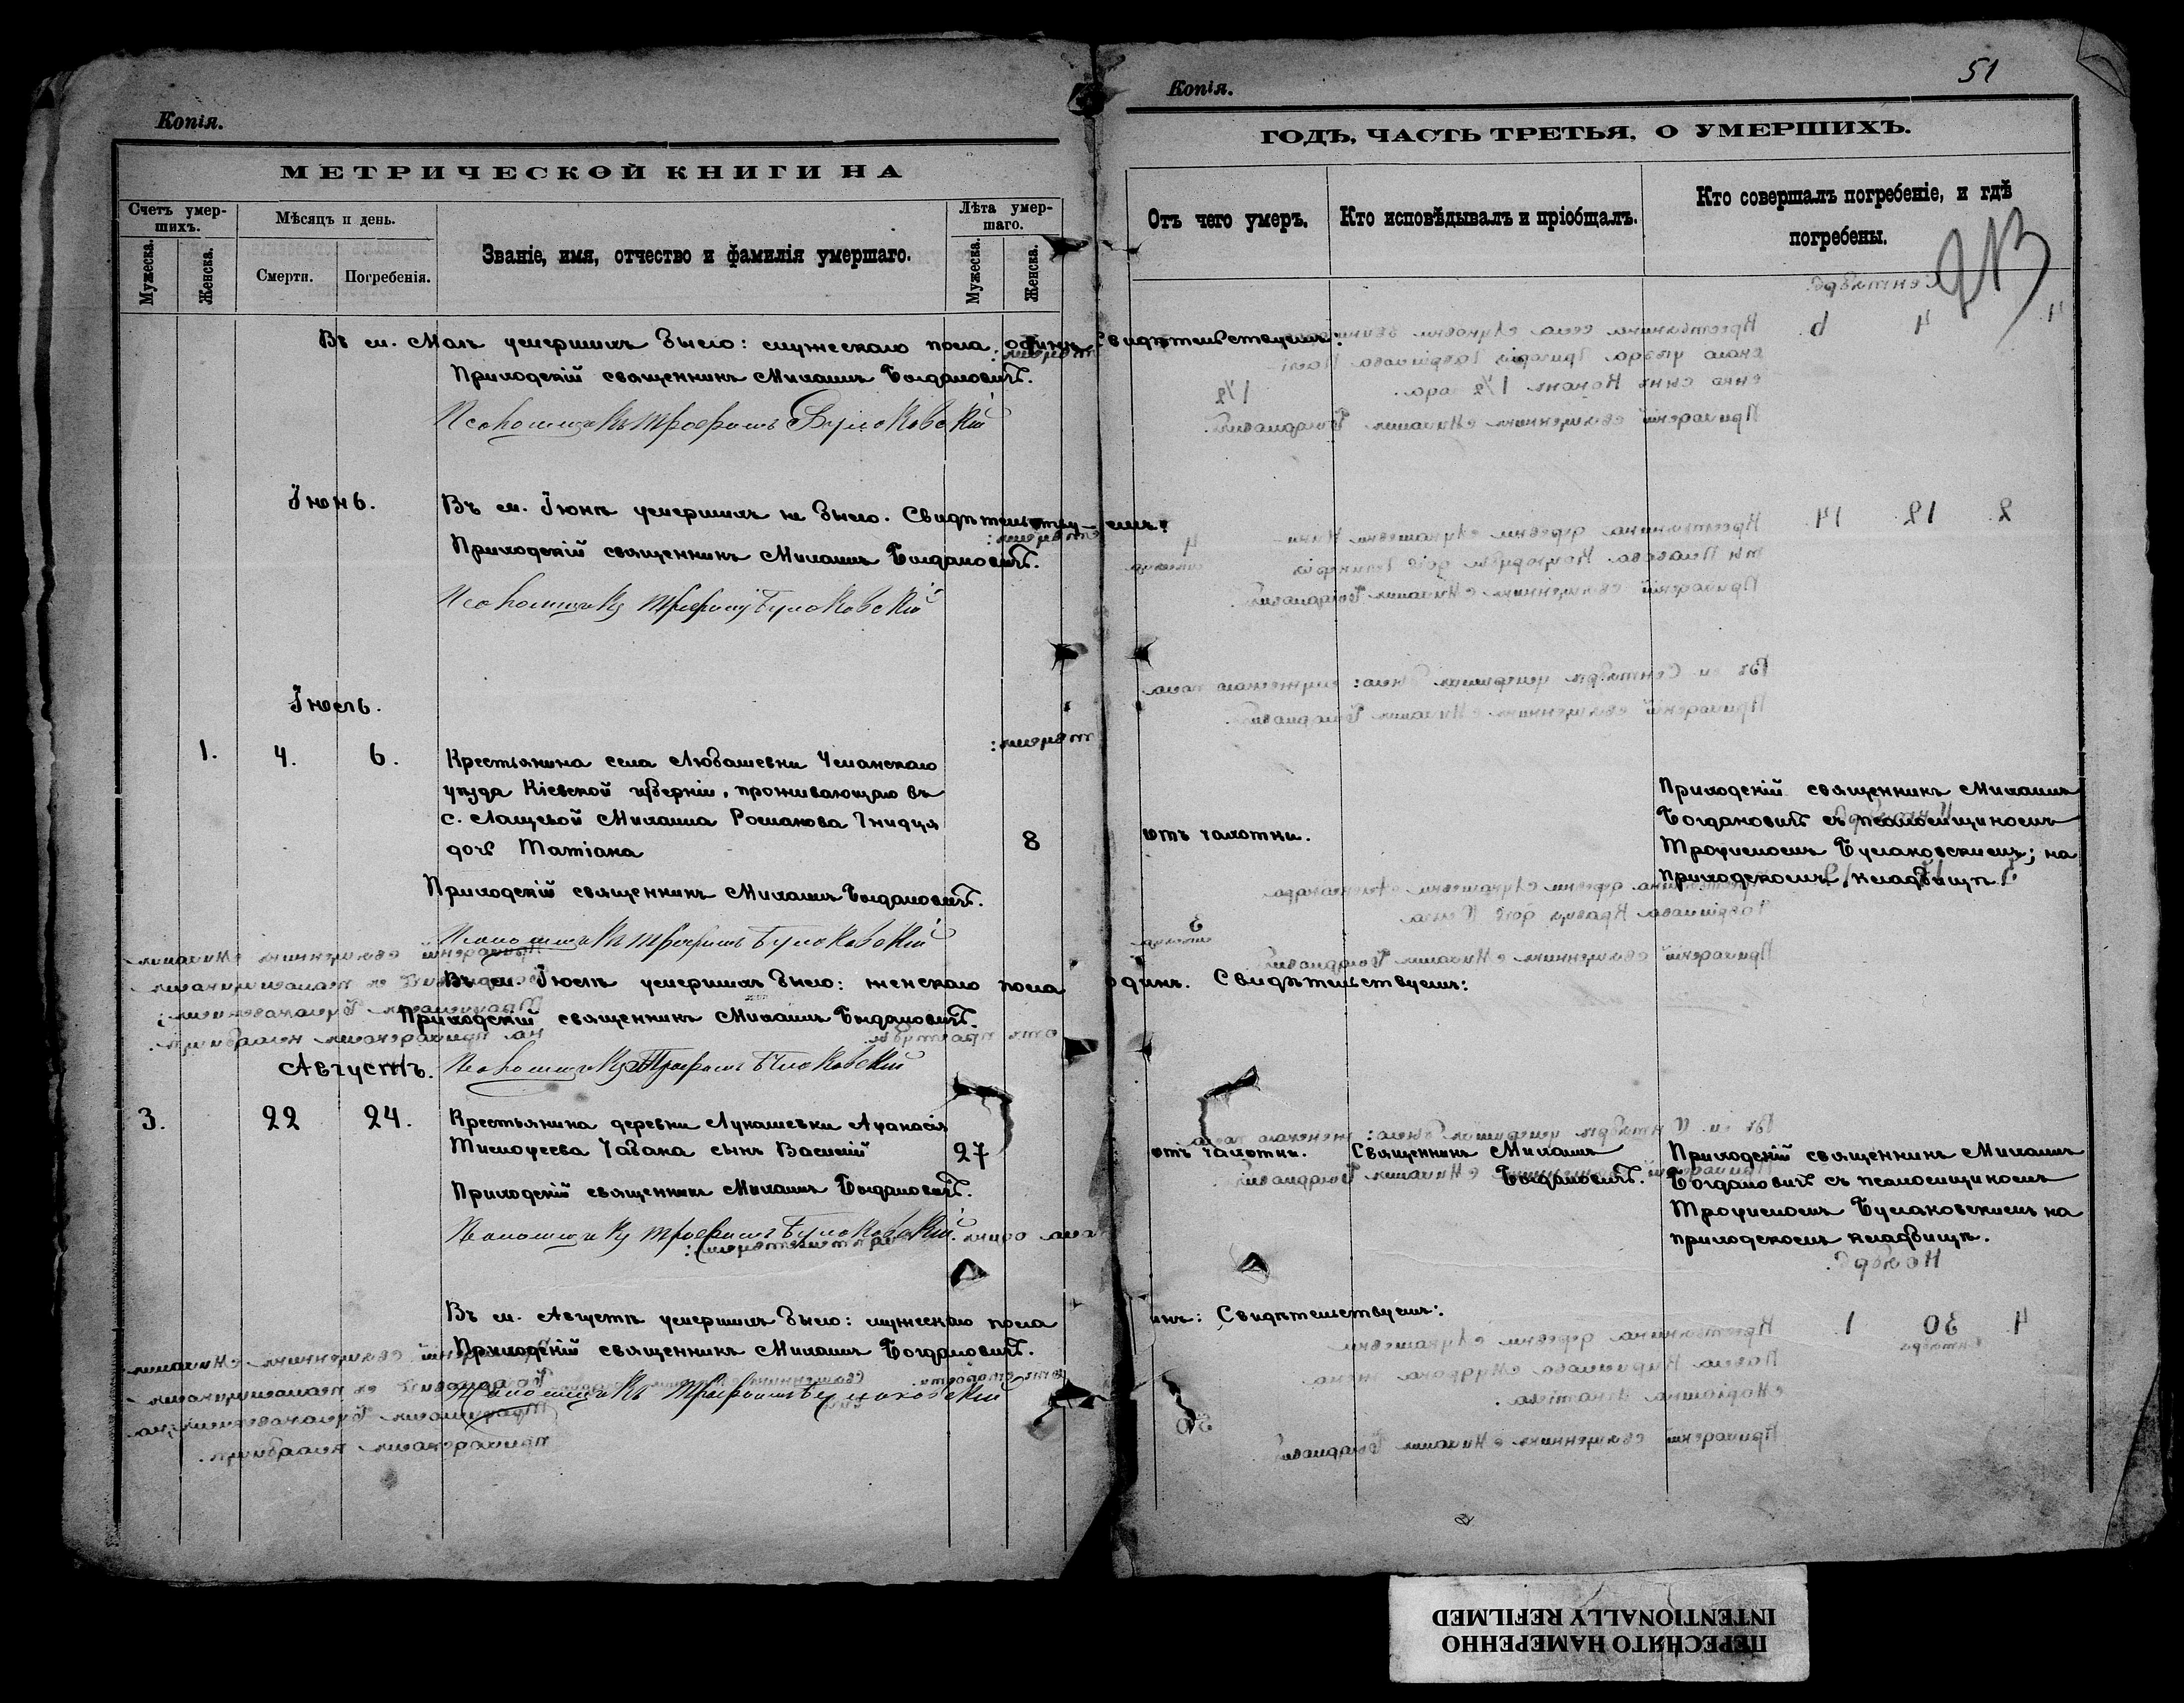 Копія.
МЕТРИЧЕСКОЙ КНИГИ НА
Счетъ умер-
шихъ.
Мужеска.
Женска.
Мѣсяцъ и день.
Смерти.
Погребенія.
Званіе, имя, отчество и фамилія умершаго.
Лѣта умер-
шаго.
Мужеска.
Женска.
Копія.
51
ГОДЪ, ЧАСТЬ ТРЕТЬЯ, О УМЕРШИХЪ.
Отъ чего умеръ.
Кто исповѣдывалъ и пріобщалъ.
Кто совершалъ погребеніе, и гдѣ
погребены.
Въ м. Маѣ умершихъ было: мужескаго пола одинъ. Свидѣтельствуемъ:
Приходскій священникъ Михаилъ Богдановичъ.
Псаломщикъ Трофимъ Буслаковскій
Іюнь.
Въ м. Іюнѣ умершихъ не было. Свидѣтельству-емъ:
Приходскій священникъ Михаилъ Богдановичъ.
Псаломщикъ Трофимъ Буслаковскій
Іюль.
1. 4. 6.
Крестьянина села Любашевки Уманскаго
уѣзда Кіевской губерніи, проживающаго въ
с. Лащевой Михаила Романова Гнидця
дочь Татіана 8 отъ чахотки.
Приходскій священникъ Михаилъ Богдановичъ.
Псаломщикъ Трофимъ Буслаковскій
Приходскій священникъ Михаилъ
Богдановичъ съ псаломщикомъ
Трофимомъ Буслаковскимъ; на
приходскомъ кладбищѣ.
Въ м. Іюлѣ умершихъ было: женскаго пола одинъ. Свидѣтельствуемъ:
Приходскій священникъ Михаилъ Богдановичъ.
Августъ.
Псаломщикъ Трофимъ Буслаковскій
3. 22 24.
Крестьянина деревни Лукашевки Афанасія
Тимофеева Чабана сынъ Василій 27 отъ чахотки.
Приходскій священникъ Михаилъ Богдановичъ.
Псаломщикъ Трофимъ Буслаковскій.
Священникъ Михаилъ
Богдановичъ.
Приходскій священникъ Михаилъ
Богдановичъ съ псаломщикомъ
Трофимомъ Буслаковскимъ на
приходскомъ кладбищѣ.
Въ м. Августѣ умершихъ было: мужескаго пола инъ: Свидѣтельствуемъ:
Приходскій священникъ Михаилъ Богдановичъ.
Псаломщикъ Трофимъ Буслаковскій
ПЕРЕСНЯТО НАМЕРЕННО
INTENTIONALLY REFILMED